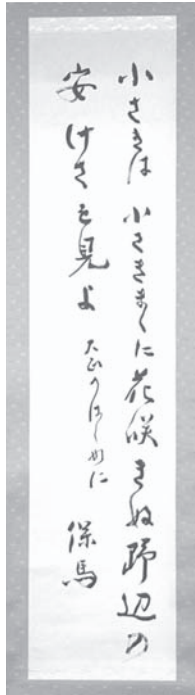 小さきは小さきまゝに花咲きぬ野辺の
安けさを見よ
大正のはじめに
保馬